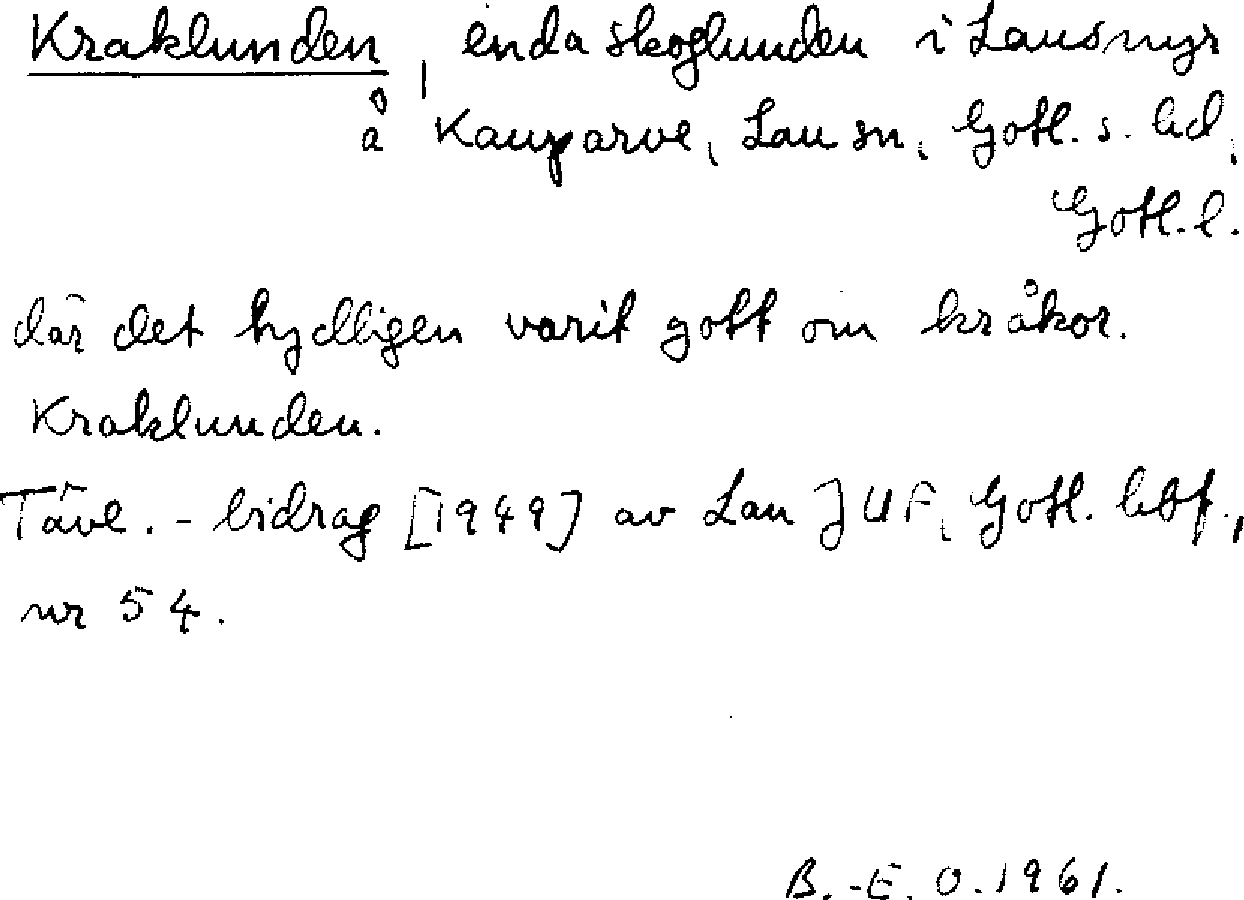 Kraklunden, enda skoglunden i Lausmyr
å Kauparve, Lau sn, Gotl. s. hd,
Gotl. l.
där det tydligen varit gott om kråkor.
Kraklunden.
Tävl.-bidrag [1949] av Lau JUF, Gotl. hbf.,
nr 54.
B.-E. O. 1961.